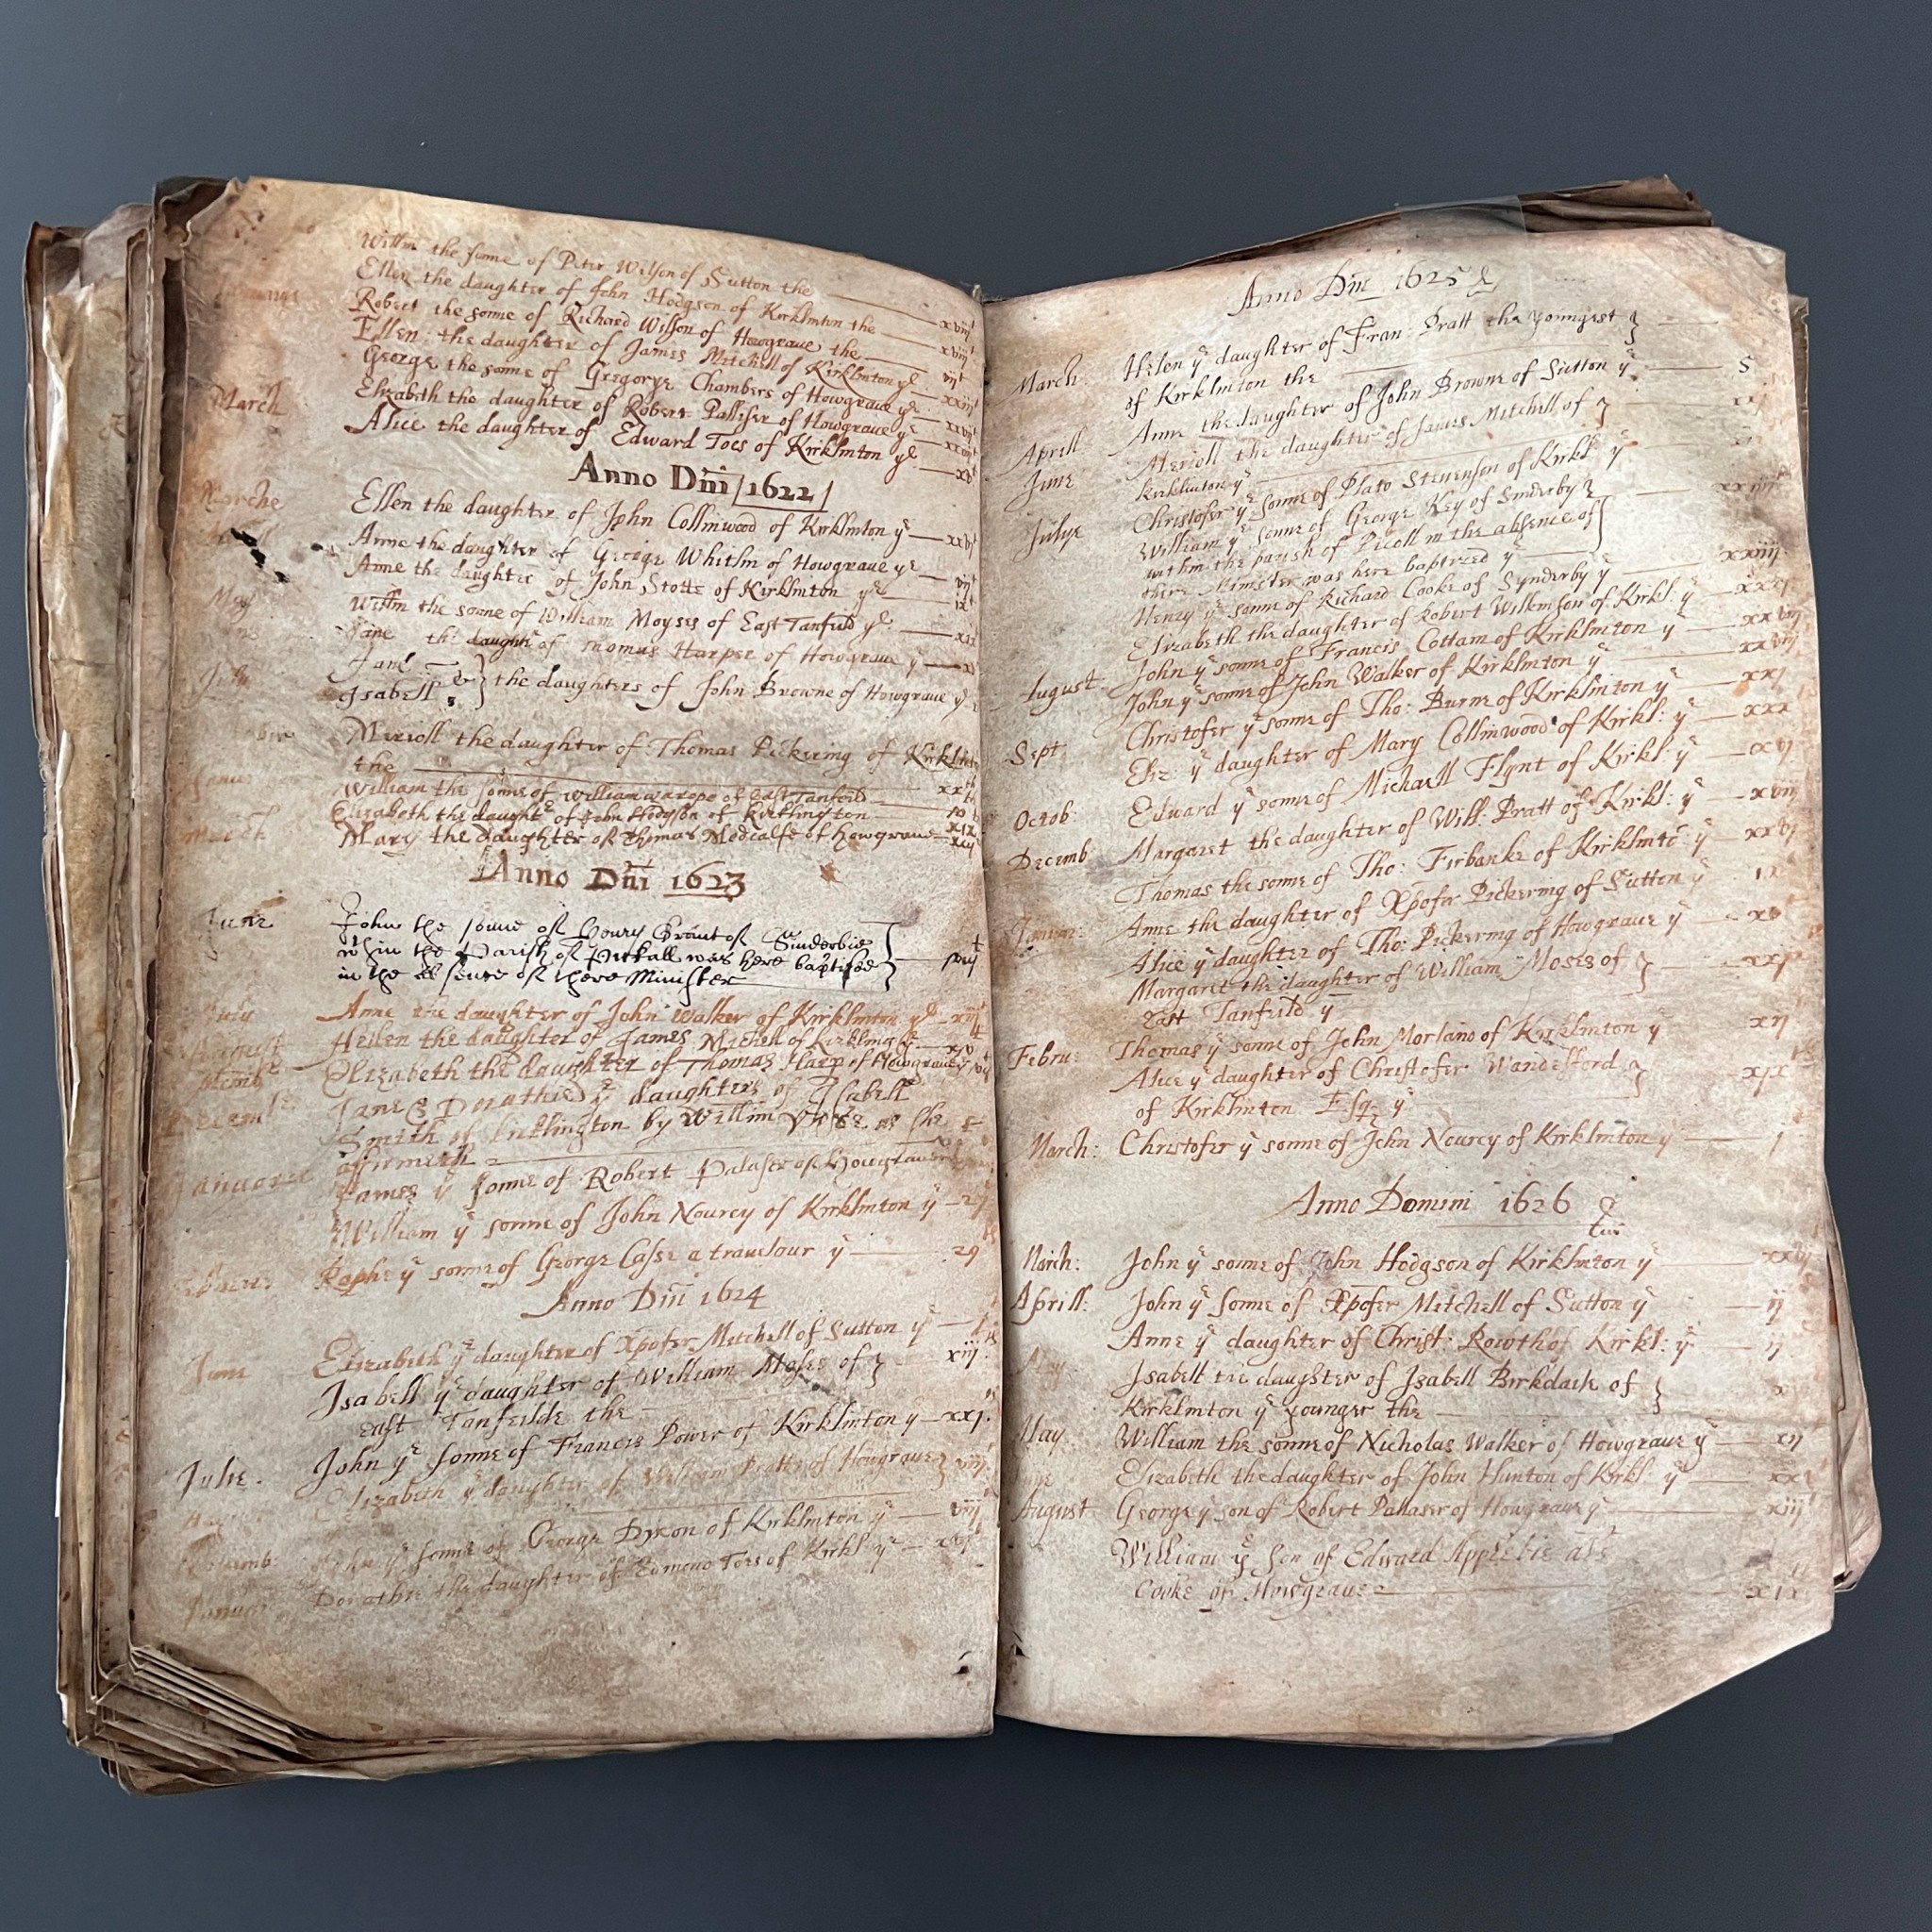 Willm the sonne of Peter Wilson of Sutton the xviijt
Ellen the daughter of John Hodgson of Kirklinton the xviijt
Robert the sonne of Richard Wilson of Howgraue the vijt
Ellen the daughter of James Mitchell of Kirklinton ye xxiijt
George the sonne of Gregorye Chambers of Howgraue ye
March Elizabeth the daughter of Robert Palliser of Howgraue ye
Alice the daughter of Edward Toes of Kirklinton ye
Anno Dm̄i 1622
Marche Ellen the daughter of John Collinwood of Kirklinton ye
Anne the daughter of George Whitlin of Howgraue ye
Anne the daughter of John Stotte of Kirklinton ye ixt
May Willm the sonne of William Moyses of East Tanfeild ye
Jane the daughtr of Thomas Harper of Howgraue ye
July Jane &
Isabell } the daughters of John Browne of Howgraue ye
Merioll the daughter of Thomas Pickering of Kirklinton
the
William the sonne of William of East Tanfeild
Elizabeth the daught of John Hodgson of Kirtlington
March Mary the daughter of Thomas Medcalfe of howgraue
Anno Dm̄i 1623
June John the sonne of Henry Grant of Sinderbie
within the Parish of Pickall was here baptised
in the absence of there Minister
July Anne the daughter of John Walker of Kirklinton ye
August Hellen the daughter of James Mitchell of Kirklington
Elizabeth the daughter of Thomas Harp of Howgraue
Decemb Jane & Dorathie ye daughters of Isabell
Smith of kirtlington by Willm as she
affirmeth
Januarie James ye sonne of Robert Palaser of Howgraue
William ye sonne of John Nourcy of Kirklinton ye
Raphe ye sonne of George Casse a trauilour ye 29
Anno Dm̄i 1624
June Elizabeth ye daughter of Xpofer Mitchell of Sutton ye
Isabell ye daughter of William Moses of } xiij
east Tanfeilde the
Julie. John ye sonne of Francis Power of Kirklinton ye xxj.
Elizabeth ye daughter of William Pratt of Howgraue
John ye sonne of George Dixon of Kirklinton ye viij
Januar Dorathie the daughter of Edmond Toes of Kirkl ye
Anno Dm̄i 1625
March Helen ye daughter of Fran Pratt the youngest }
of Kirklinton the 5
Aprill Anne the daughter of John Browne of Sutton ye
June Merioll the daughter of James Mitchell of }
Kirklinton ye
Julye Christofer ye sonne of Plato Steuenson of Kirkl: ye
William ye sonne of George Key of Sinderby
within the parish of Picoll in the absence of
there Minister was here baptized ye xxiiij
Henry ye sonne of Richard Cooke of Synderby ye
Elizabeth the daughter of Robert Wilkinson of Kirkl: ye
August John ye sonne of Francis Cottam of Kirklinton ye xxviij
John ye sonne of John Walker of Kirklinton ye xxj
Sept Christofer ye sonne of Tho: Burne of Kirklinton ye xxx
Eliz: ye daughter of Mary Collinwood of Kirkl: ye
Octob: Edward ye sonne of Michaell Flynt of Kirkl: ye xviij
Decemb Margaret the daughter of Will: Pratt of Kirkl: ye xxvj
Thomas the sonne of Tho: Firbanke of Kirklintō: ye ix
Januar: Anne the daughter of Xpofer Pickering of Sutton ye
Alice ye daughter of Tho: Pickering of Howgraue ye
Margaret the daughter of William Moses of }
East Tanfeild ye
Febru: Thomas ye sonne of John Morland of Kirklinton ye xij
Alice ye daughter of Christofer Wandesford } xix
of Kirklinton Esqz ye
March: Christofer ye sonne of John Nourcy of Kirklinton ye 1
Anno Domini 1626
March: John ye sonne of John Hodgson of Kirklinton ye
Aprill: John ye sonne of Xpofer Mitchell of Sutton ye ij
Anne ye daughter of Christ: Rowth of Kirkl: ye ij
Isabell the daughter of Isabell Birkdale of }
Kirklinton ye younger the
May William the sonne of Nicholas Walker of Howgraue ye xij
Elizabeth the daughter of John Hunton of Kirkl: ye
August George ye son of Robert Palaser of Howgraue ye xiij
William ye son of Edward Applebie als
Cooke of Howgraue xix